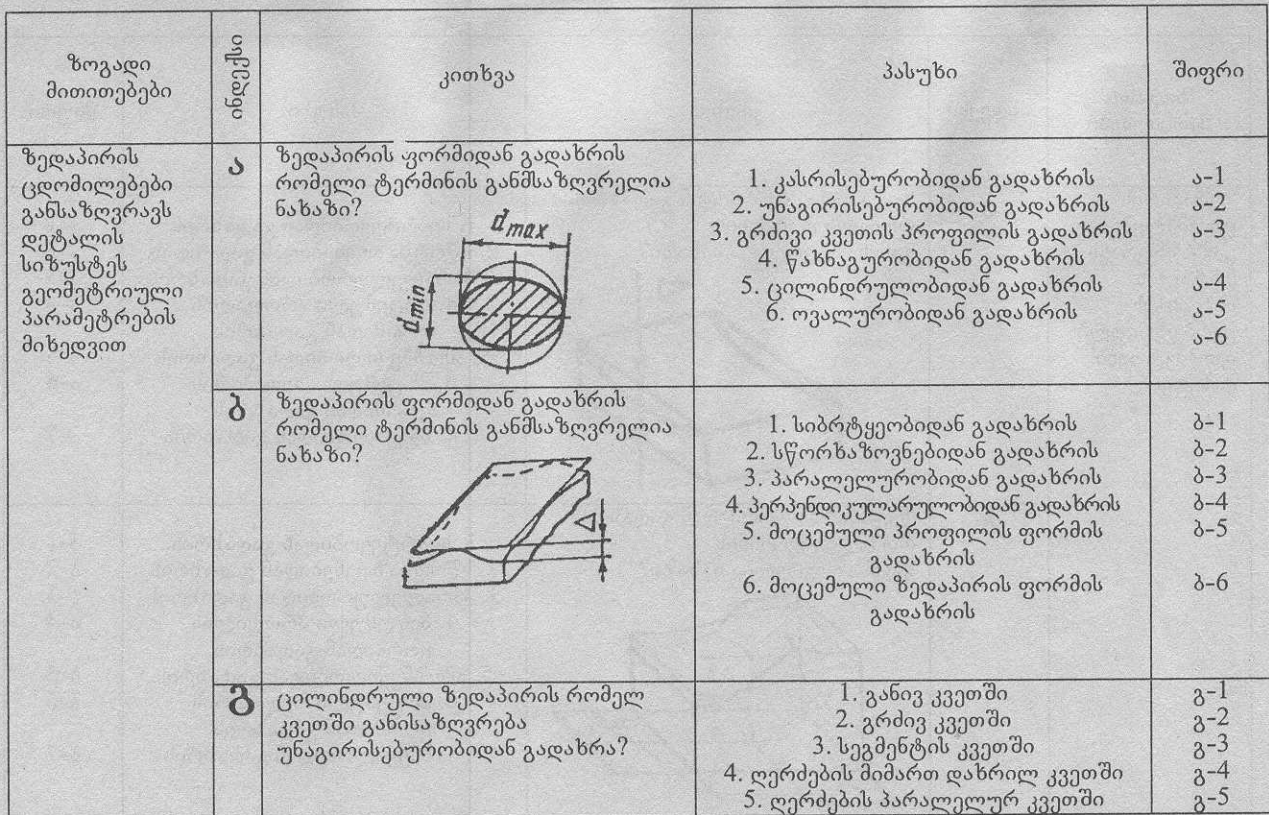 ზოგადი
მითითებები
ინდექსი
კითხვა
პასუხი
შიფრი
ზედაპირის
ცდომილებები
განსაზღვრავს
დეტალის
სიზუსტეს
გეომეტრიული
პარამეტრების
მიხედვით
ა
ზედაპირის ფორმიდან გადახრის
რომელი ტერმინის განმსაზღვრელია
ნახაზი?
d max
d min
1. კასრისებურობიდან გადახრის
2. უნაგირისებურობიდან გადახრის
3. გრძივი კვეთის პროფილის გადახრის
4. წახნაგურობიდან გადახრის
5. ცილინდრულობიდან გადახრის
6. ოვალურობიდან გადახრის
ა-1
ა-2
ა-3
ა-4
ა-5
ა-6
ბ
ზედაპირის ფორმიდან გადახრის
რომელი ტერმინის განმსაზღვრელია
ნახაზი?
Δ
1. სიბრტყეობიდან გადახრის
2. სწორხაზოვნებიდან გადახრის
3. პარალელურობიდან გადახრის
4. პერპენდიკულარულობიდან გადახრის
5. მოცემული პროფილის ფორმის
გადახრის
6. მოცემული ზედაპირის ფორმის
გადახრის
ბ-1
ბ-2
ბ-3
ბ-4
ბ-5
ბ-6
გ
ცილინდრული ზედაპირის რომელ
კვეთში განისაზღვრება
უნაგირისებურობიდან გადახრა?
1. განივ კვეთში
2. გრძივ კვეთში
3. სეგმენტის კვეთში
4. ღერძების მიმართ დახრილ კვეთში
5. ღერძების პარალელურ კვეთში
გ-1
გ-2
გ-3
გ-4
გ-5